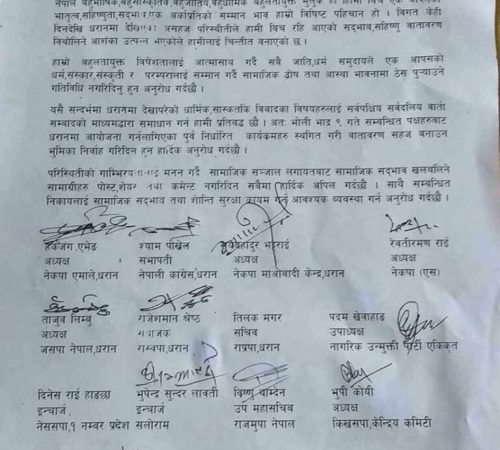 नेपाल बहुभाषिक,बहुसांस्कृतिक,बहुजातीय,बहुधार्मिक बहुलतायुक्त मुलुक हो
भातृत्व,सहिष्णुता,सदभाव एक अर्काप्रतिको सम्मान भाव हाम्रो विशिष्ट पहिचान हो । विगत केही
दिनदेखि धरानमा असहज परिस्थितीले हामी विच रहि आएको सदभाव,सहिष्णु वातावरण
विथोलिने आशंका उत्पन्न भएकोले हामीलाई चिन्तीत बनाएको छ ।
हाम्रो बहुलतायुक्त विषेशतालाई आत्मासाथ गर्दै सवै जाति,धर्म समुदायले एक आपसको
धर्म,संस्कार,संस्कृती र परम्परालाई सम्मान गर्दै सामाजिक द्वोष तथा आस्था भावनामा ठेस पुऱ्याउने
गतिविधि नगरिदिनु हुन अनुरोध गर्दछौ ।
यसै सन्दर्भमा धरानमा देखापरेको धार्मिक,सास्कतकि विवादका विषयहरुलाई सर्वपक्षिय सर्वदलिय वार्ता
सम्वादको माध्यमद्वारा समाधान गर्न हामी प्रतिवद्ध छौ । अतः भोली भाद्र ९ गते सम्वन्धित पक्षहरुवाट
धरानमा आयोजना गर्नलागिएका पुर्व निर्धारित कार्यक्रमहरु स्थगित गरी वातावरण सहज वनाउन
भुमिका निर्वाह गरिदिन हुन हार्दिक अनुरोध गर्दछौ ।
परिस्थितीको मनन गर्दै सामाजिक सञ्जाल लगायतवाट सामाजिक सदभाव खलवलिने
सामाग्रीहरु पोस्ट,शेयर तथा कमेन्ट नगरिदिन सवैमा हार्दिक अपिल गर्दछौ । साथै सम्वन्धित
निकायलाई सामाजिक सदभाव तथा शान्ति सुरक्षा कायम गर्न आवश्यक व्यवस्था गर्न अनुरोध गर्दछौ ।
हर्कजंग श्याम पोखेल भट्टराई रेवतीरमण राई
अध्यक्ष सभापती अध्यक्ष अध्यक्ष
नेकपा एमाले,धरान नेपाली कांग्रेस,धरान नेकपा माओवादी केन्द्र,धरान नेकपा (एस)
ताजुव लिम्बु राजेशमान श्रेष्ठ तिलक मगर पदम खेवाहाङ
अध्यक्ष सचिव उपाध्यक्ष
जसपा नेपाल,धरान राप्रपा,धरान नागरिक उन्मुक्ती पार्टी एकिकृत
दिनेस राई हाङछा भुपेन्द्र सुन्दर लावती विष्णु भुपी
इन्चार्ज इन्चार्ज उप महासचिव अध्यक्ष
नेससपा,१ नम्वर प्रदेश सलोराम राजमुपा नेपाल किखसपा,केन्द्रिय कमिटी